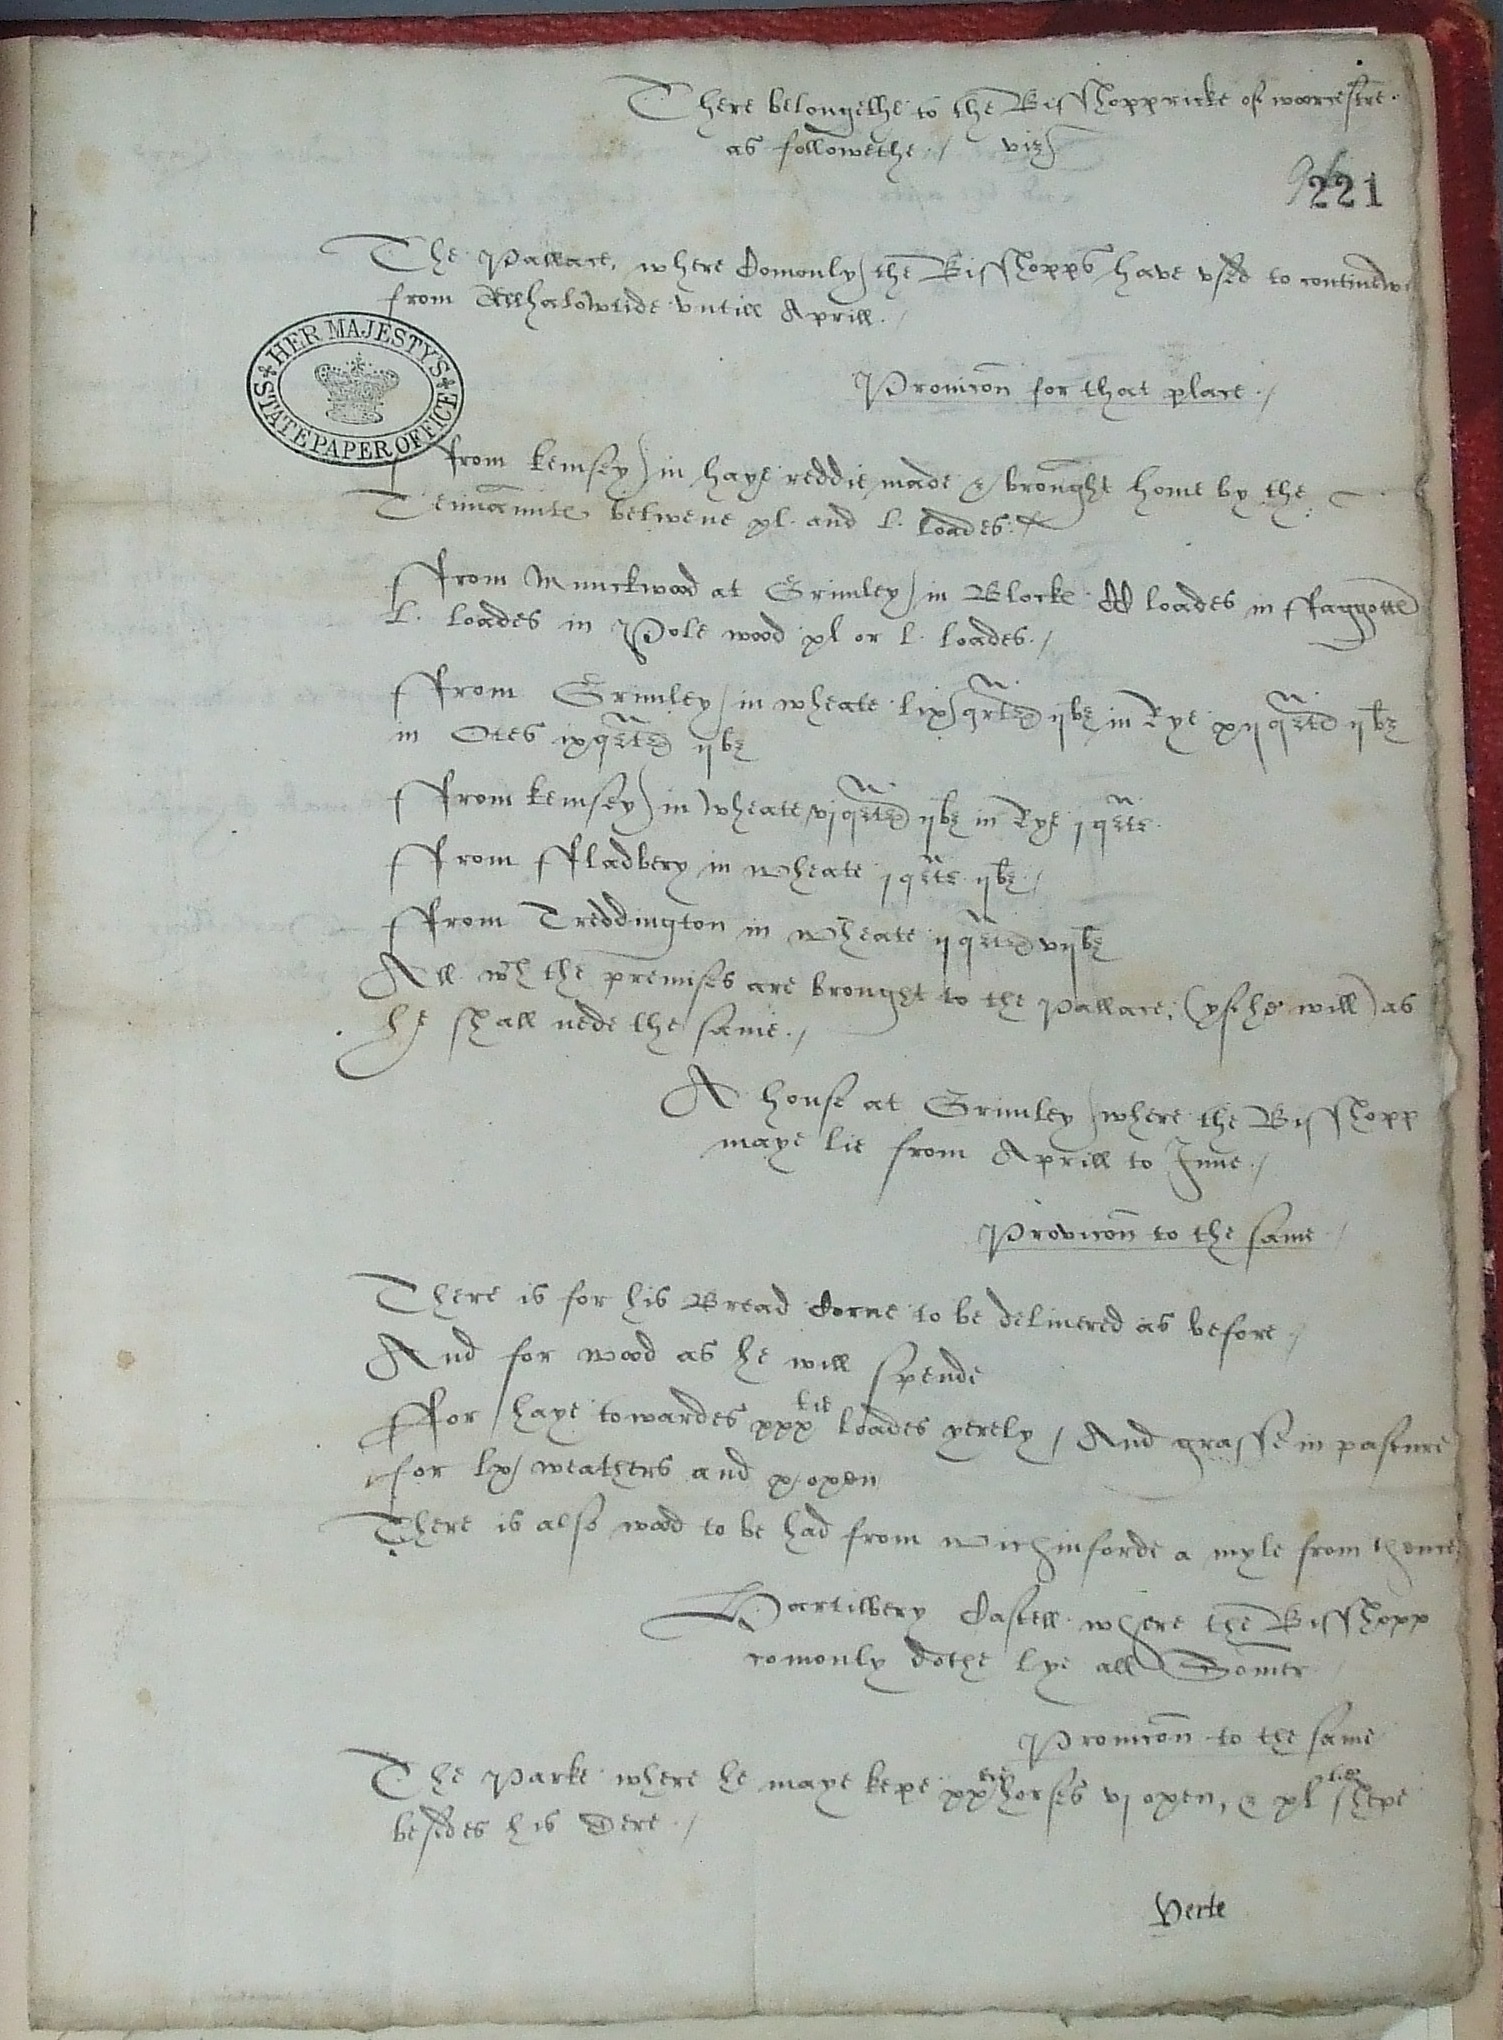 There belongethe to the Bisshoppricke of worcestre.
as followethe./ viz
96
221
The Pallace, where Comonly the Bisshopps have vsed to continewe
from Allhalowtide vntill Aprill./
HER MAJESTY'S STATE PAPER OFFICE
Provicōn for that place./
ffrom Kemsey in haye reddie made & brought home by the
Tennāntes betwene xl. and l. loades./
ffrom Munckwood at Grimley in Blocke CC loades in ffaggotte
l. loades in Pole wood xl or l. loades./
ffrom Grimley in wheate lix qrters ijbz in Rye xij qrters ijbz
in Otes ix qrters ijbz
ffrom Kemsey in wheate vj qrters ijbz in Rye j qrter.
ffrom ffladbery in wheate j qrter ijbz./
ffrom Treddington in wheate ij qrters vijbz
All wch the premises are brought to the Pallace, (yf he will) as
he shall nede the same./
A house at Grimley where the Bisshopp
maye lie from Aprill to June./
Provicōn to the same./
There is for his Bread Corne to be delivered as before./
And for wood as he will spende
ffor haye towardes xxxtie loades yerely / And grasse in pasture
for lx weathers and x oxen
There is also wood to be had from Wichinforde a myle from thence
Hartilbery Castell where the Bisshopp
comonly dothe lye all Somer./
Provicōn to the same
The Parke where he maye kepe xxtie horses vj oxen, & xltie shepe
besides his Dere./
Verte